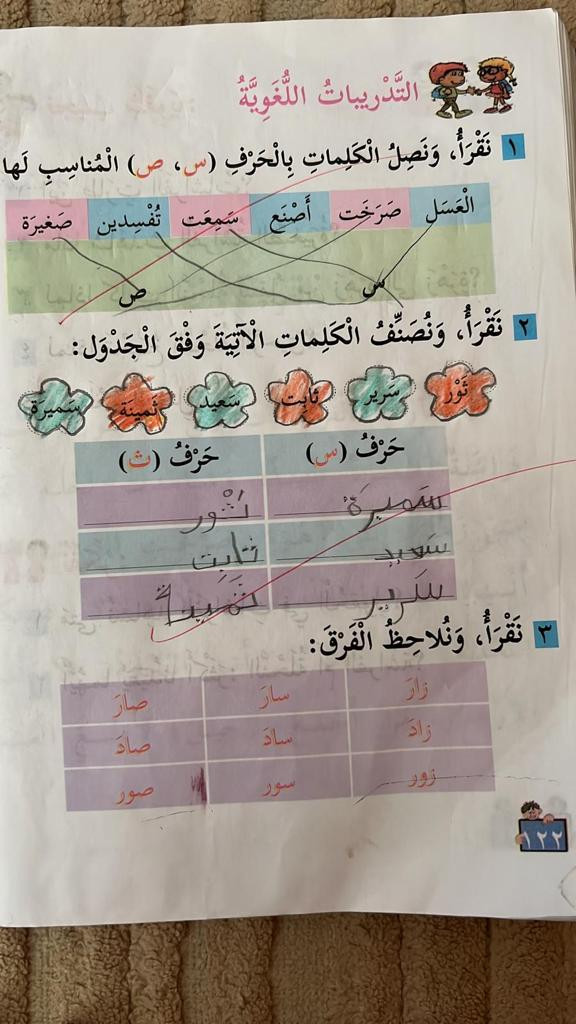 التَّدْرِيباتُ اللُّغَوِيَّةُ
١ نَقْرَأُ، وَنَصِلُ الْكَلِماتِ بِالْحَرْفِ (س، ص) الْمُناسِبِ لَها
الْعَسَل صَرَخَت أَصْنَع سَمِعَت تُفْسِدين صَغيرَة
س ص
٢ نَقْرَأُ، وَنُصَنِّفُ الْكَلِماتِ الْآتِيَةَ وَفْقَ الْجَدْوَلِ:
ثَوْر سَرير ثابِت سَعيد ثَمينَة سَميرَة
حَرْفُ (س) حَرْفُ (ث)
سَميرَة ثَور
سَعيد ثابِت
سَرير ثَمينة
٣ نَقْرَأُ، وَنُلاحِظُ الْفَرْقَ:
زارَ سارَ صارَ
زادَ سادَ صادَ
زور سور صور
١٢٢